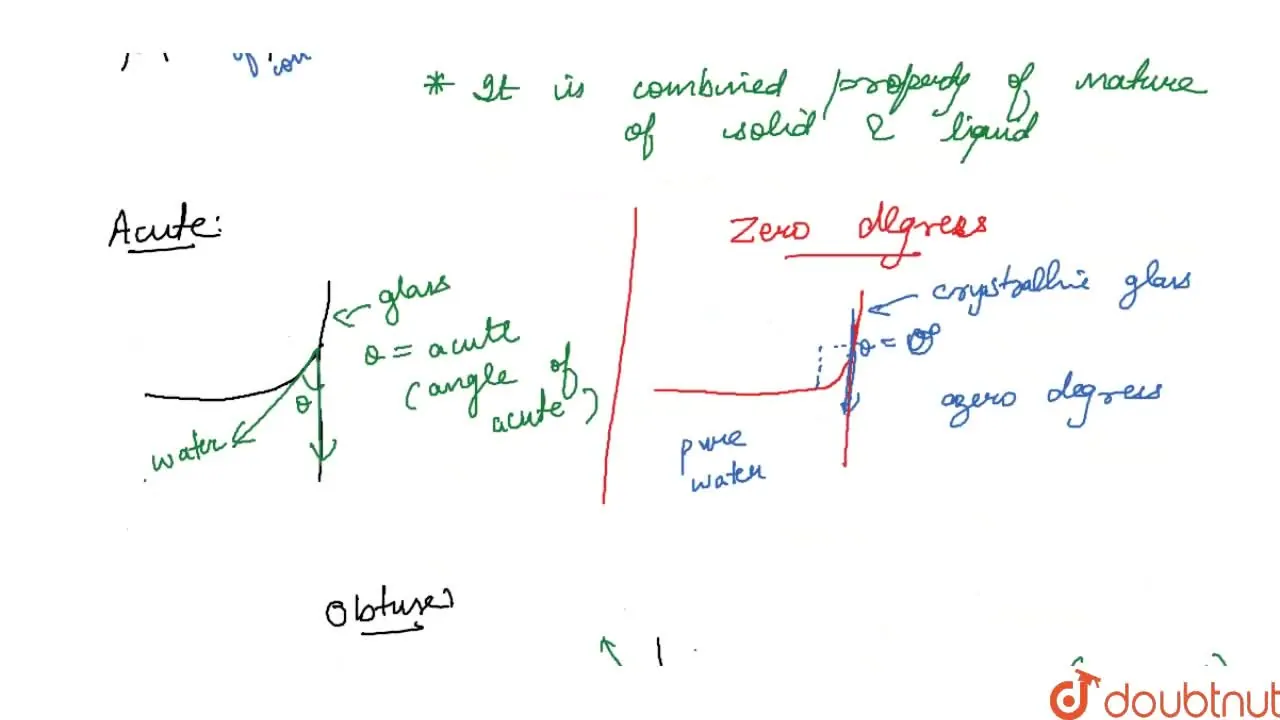 * It is combined property of nature
of solid & liquid
Acute:
glass
θ = acute
(angle of
acute)
θ
water
Zero degrees
crystalline glass
θ = 0°
zero degrees
pure
water
Obtuse
doubtnut